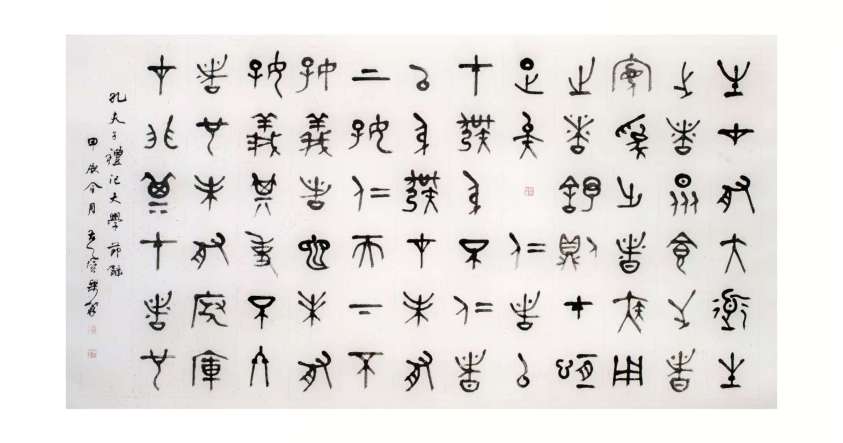 生才有大道生
之者眾食之者
寡為之者疾用
之者舒則才恆
足矣仁者以
才發身不仁者
以身發才未有
上好仁而下不
好義者也未有
好義其事不終
者也未有府庫
才非其才者也
孔夫子禮記大學節錄
甲辰月